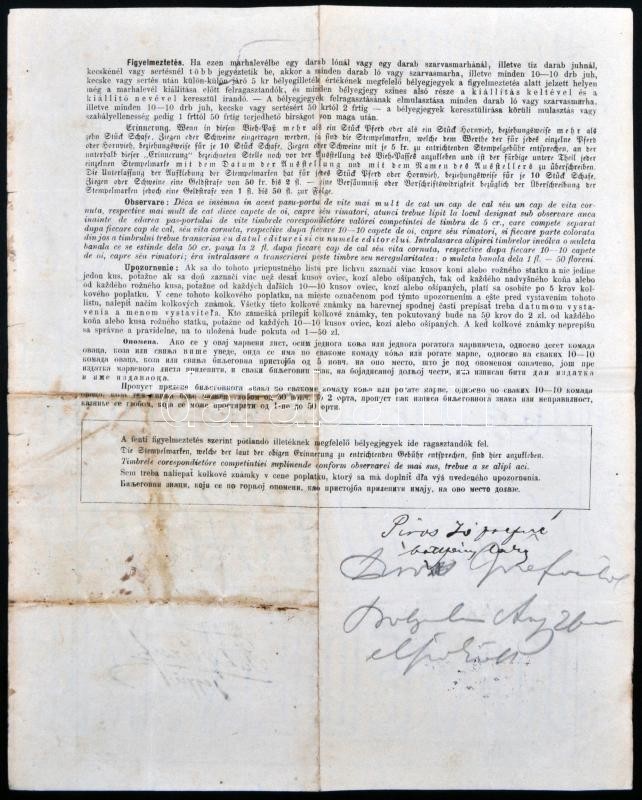 Figyelmeztetés. Ha ezen marhalevélbe egy darab lónál vagy egy darab szarvasmarhánál, illetve tíz darab juhnál,
kecskénél vagy sertésnél több jegyeztetik be, akkor a minden darab ló vagy szarvasmarha, illetve minden 10—10 drb juh,
kecske vagy sertés után külön-külön járó 5 kr bélyegilleték értékének megfelelő bélyegjegyek a figyelmeztetés alatt jelzett helyen
még a marhalevél kiállítása előtt felragasztandók, és minden bélyegjegy színes alsó része a kiállítás keltével és a
kiállító nevével keresztül írandó. — A bélyegjegyek felragasztásának elmulasztása minden darab ló vagy szarvasmarha,
illetve minden 10—10 drb juh, kecske vagy sertésért 50 krtól 2 frtig — a bélyegjegyek keresztülírása körüli mulasztás vagy
szabályellenesség pedig 1 frttól 50 frtig terjedhető bírságot von maga után.
Erinnerung. Wenn in diesen Vieh-Paß mehr als ein Stück Pferd oder als ein Stück Hornvieh, beziehungsweise mehr als
zehn Stück Schafe, Ziegen oder Schweine eingetragen werden, so sind die Stempelmarken, welche dem Werthe der für jedes einzelne Pferd
oder Hornvieh, beziehungsweise für je 10 Stück Schafe, Ziegen oder Schweine mit je 5 kr. zu entrichtenden Stempelgebühr entsprechen, an der
unterhalb dieser „Erinnerung" bezeichneten Stelle noch vor der Ausstellung des Vieh-Passes aufzukleben und ist der färbige untere Theil jeder
einzelnen Stempelmarke mit dem Datum der Ausstellung und mit dem Namen des Ausstellers zu überschreiben.
Die Unterlassung der Aufklebung der Stempelmarken hat für jedes Stück Pferd oder Hornvieh, beziehungsweise für je 10 Stück Schafe,
Ziegen oder Schweine eine Geldstrafe von 50 kr. bis 2 fl. — eine Versäumniß oder Vorschriftswidrigkeit bezüglich der Überschreibung der
Stempelmarken jedoch eine Geldstrafe von 1 fl. bis 50 fl. zur Folge.
Observare: Déca se insémna in acest pasu-portu de vite mai mult de cat un cap de cal séu un cap de vita cor-
nuta, respective mai mult de cat dice capete de oi, capre séu rimatori, atunci trebue lipit la locul designat sub observare anca
inainte de edarea pas-portului de vite timbrele corespondietóre valórei competintiei de timbru de 5 cr., care compete separat
dupa fiecare cap de cal, séu vita cornuta, respective dupa fiecare 10—10 capete de oi, capre séu rimatori, si fiecare parte colorata
din jos a timbrului trebue transcrisa cu datul editurei si cu numele editorelui. Intralasarea alipirei timbrelor involva o muleta
banala ce se estinde dela 50 cr. pana la 2 fl. dupa fiecare cap de cal séu vita cornuta, respective dupa fiecare 10—10 capete
de oi, capre séu rimatori; éra intralasare a transcrierei peste timbre seu neregularitatea: o muleta banala dela 1 fl. — 50 floreni.
Upozornenie: Ak sa do tohoto priepustného listu pre lichvu zaznačí viac kusov koní alebo rožného statku a nie jedine
jedon kus, potažne ak sa doň zaznačí viac než desať kusov oviec, kozí alebo ošípaných, tak od každého nadvyšného koňa alebo
od každého rožného kusa, potažne od každých ďalších 10—10 kusov oviec, kozí alebo ošípaných, platí sa osobite po 5 krov kol-
kového poplatku. V cene tohoto kolkového poplatku, na mieste označenom pod týmto upozornením a ešte pred vystavením tohoto
listu, nalepiť načim kolkových známok. Všetky tieto kolkové známky na barevnej spodnej časti prepísať treba datumom vysta-
venia a menom vystaviteľa. Kto zamešká prilepiť kolkové známky, ten pokutovaný bude na 50 krov do 2 zl. od každého
koňa alebo kusa rožného statku, potažne od každých 10—10 kusov oviec, kozí alebo ošípaných. A keď kolkové známky neprepíšu
sa správne a pravidelne, na to uložená bude pokuta od 1—50 zl.
Опомена. Ако се у овај марвени лист, осим једнога коња или једнога рогатога марвинчета, односно десет комада
оваца, коза или свиња више уведе, онда се има по свакоме комаду коња или рогате марве, односно на сваких 10—10
комада оваца, коза или свиња биљеговна пристојба од 5 новч. на оно место, што је под опоменом означено, још пре
издатка марвенога листа прилепити, и сваки биљеговни знак, на бојадисаној дољној чести, има написан бити дан издатка
и име издаваоца.
Пропуст прилепке биљеговнога знака по свакоме комаду коња или рогате марве, односно по сваких 10—10 комада
A fenti figyelmeztetés szerint pótlandó illetéknek megfelelő bélyegjegyek ide ragasztandók fel.
Die Stempelmarken, welche der laut der obigen Erinnerung zu entrichtenden Gebühr entsprechen, sind hier anzukleben.
Timbrele corespondietóre competintiei suplinende conform observarei de mai sus, trebue a se alipi aci.
Sem treba nálepiať kolkové známky v cene poplatku, ktorý sa má doplniť dľa výš uvedeného upozornenia.
Биљеговни знаци, који се по горњој опомени, као пристојба прилепити имају, на ово место долазе.
Piros Józsefné